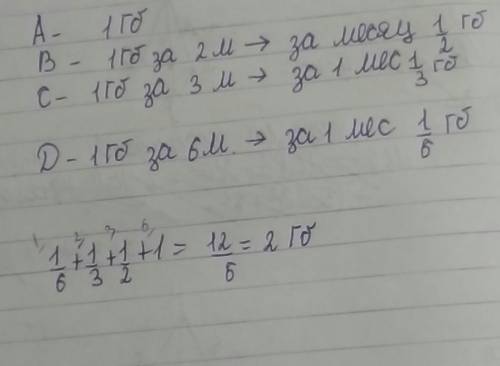 А - 1 Гб
В - 1Гб за 2 м → за месяц 1/2 Гб
С - 1Гб за 3 м → за 1 мес 1/3 Гб
D - 1Гб за 6м. → за 1 мес 1/6 Гб
1/6 + 1/3 + 1/2 + 1 = 12/6 = 2 Гб